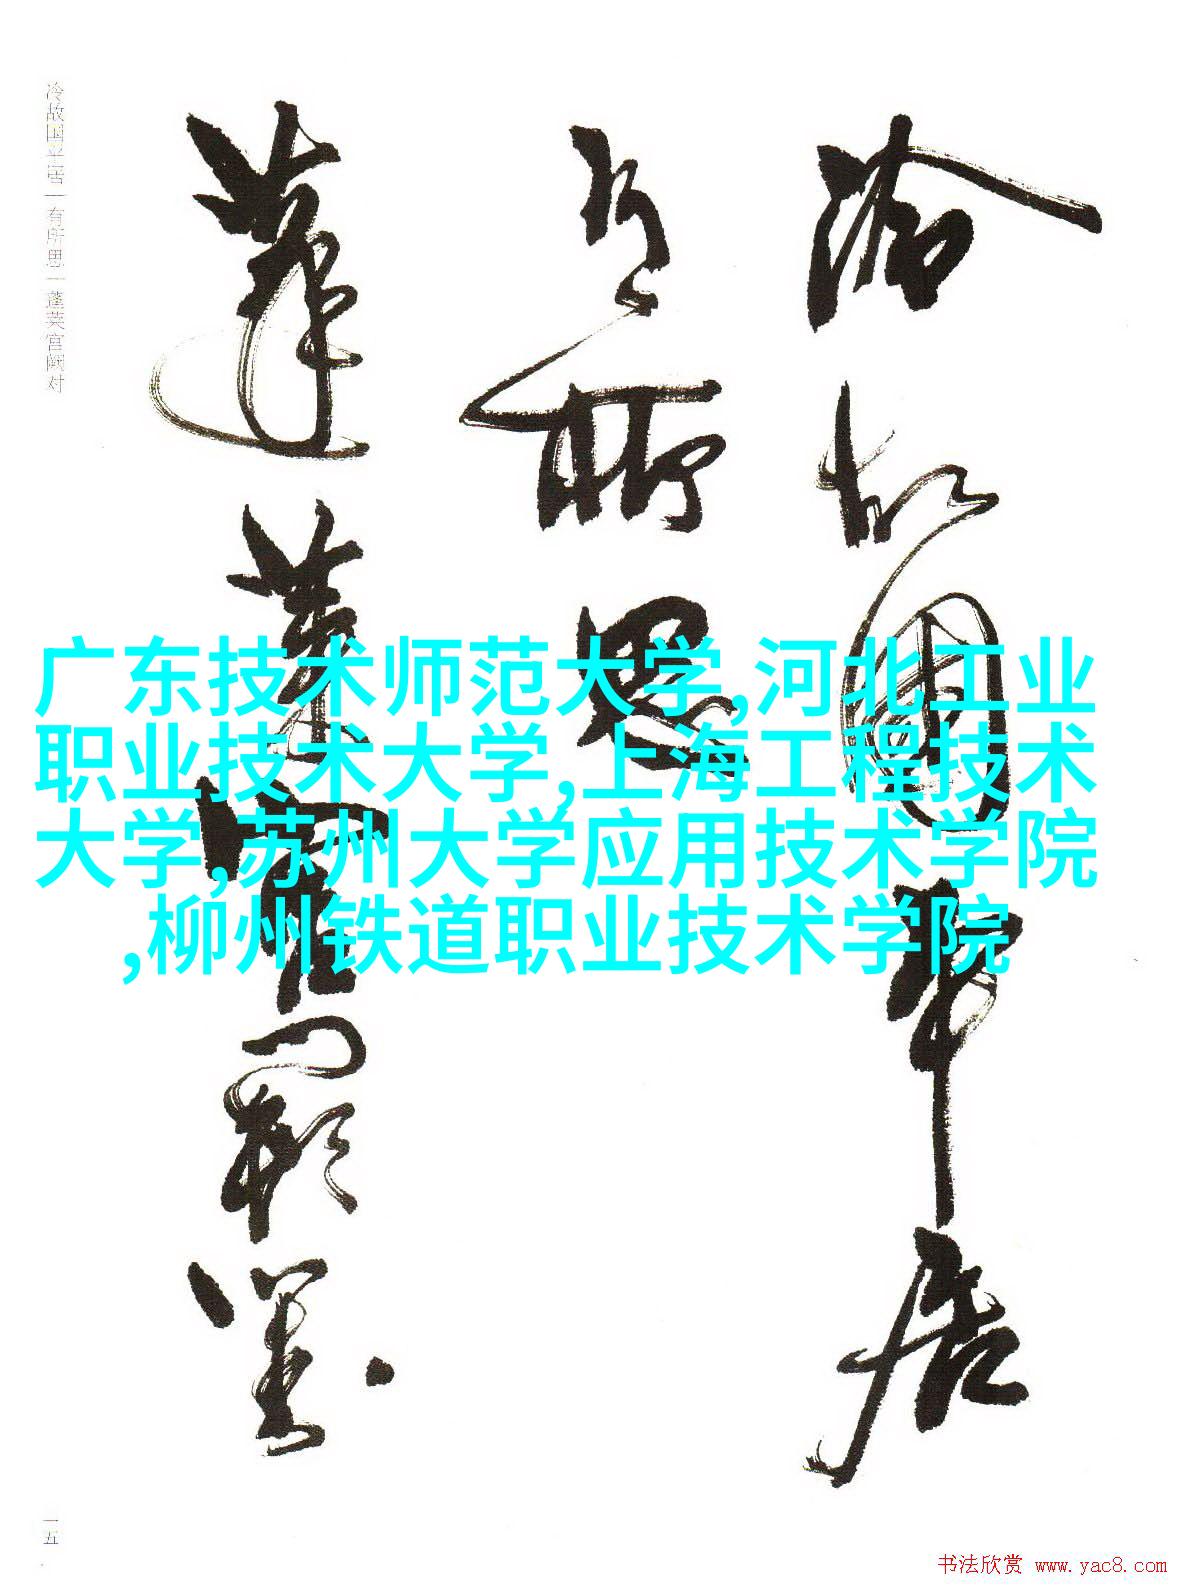 冷故國平居
有所思
蓬萊宫闕對
冷故国平居|有所思|蓬莱宫阙对
一五
广东技术师范大学,河北工业
职业技术大学,上海工程技术
大学,苏州大学应用技术学院
,柳州铁道职业技术学院
书法欣赏 www.yac8.com